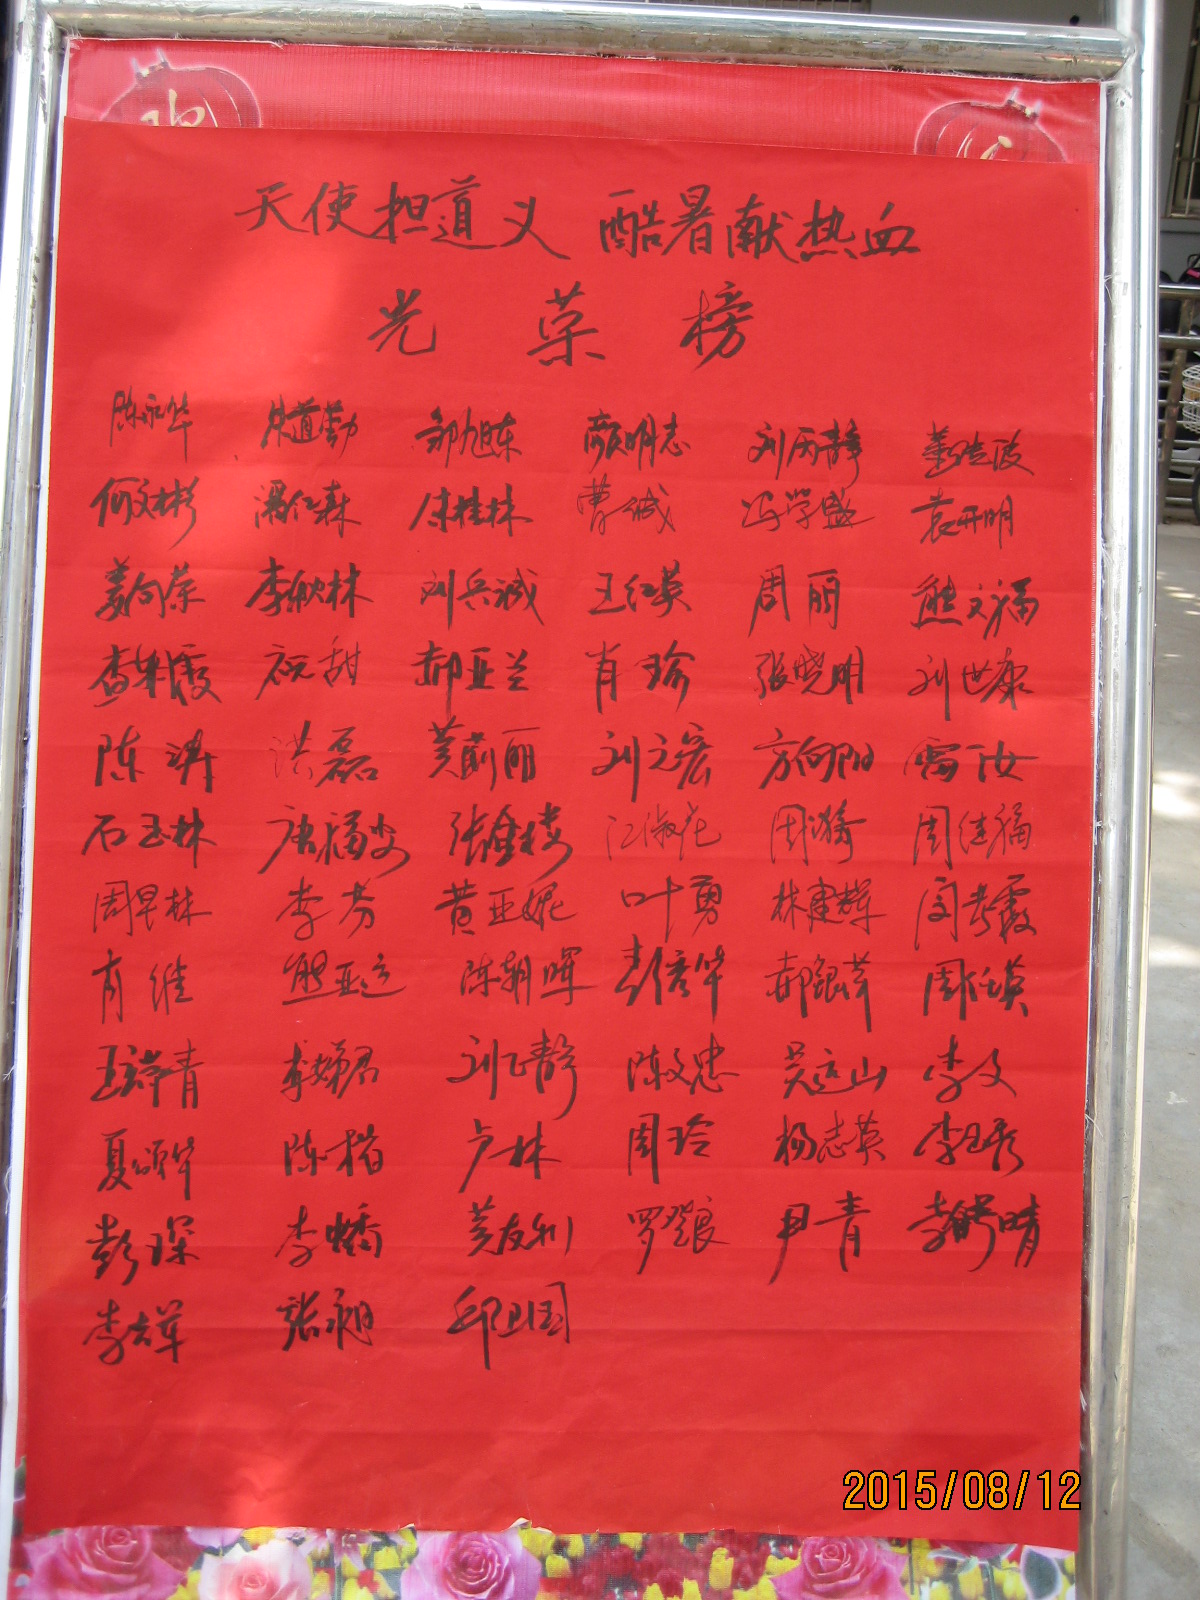 天使担道义 酷暑献热血
光荣榜
陈永华 朱道勤 邹旭东 颜明志 刘丙静
何文彬 冯仁森 付桂林 曹诚 冯学盛 袁开明
姜向荣 李秋林 刘兵诚 王红英 周丽 熊文福
祝甜 郝亚兰 肖珍 张晓明 刘世康
陈涛 洪磊 黄莉丽 刘之宏 方向阳 雷汝
石玉林 唐福安 张金楼 江淑花 周漪 周佳福
周早林 李芬 黄亚妮 叶勇 林建辉
肖维 熊亚运 陈朝晖 彭信华 郝银萍
李娣君 刘正静 陈文忠 吴远山 李文
夏颂华 陈楷 卢林 周玲 杨志英 李玉秀
彭琛 李蟠 黄友利 尹青
李志军 张昶 邱卫国
2015/08/12